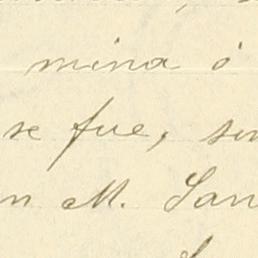 mina ó
se fue, sin
n M. San